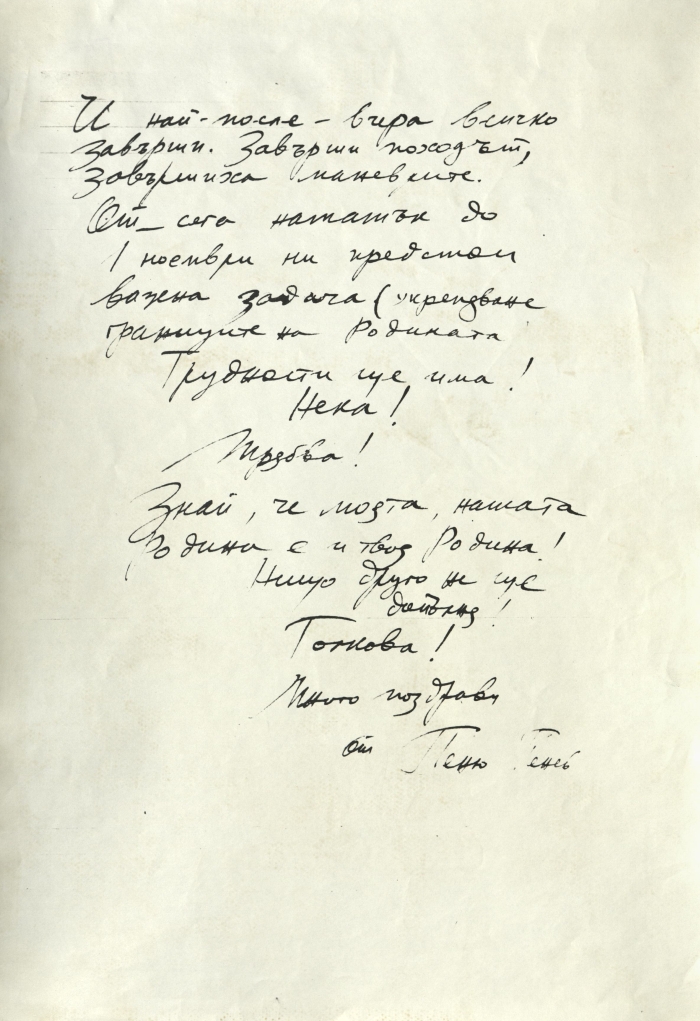 И най-после – вчера всичко
завърши. Завърши походът,
завършиха маневрите.
От сега нататък до
1 ноември ни предстои
важна задача (укрепване
границите на Родината
Трудности ще има!
Нека!
Трябва!
Знай, че моята, нашата
Родина е и твоя Родина!
Нищо друго не ще
допълня!
Толкова!
Много поздрави
от Пеню Пенев